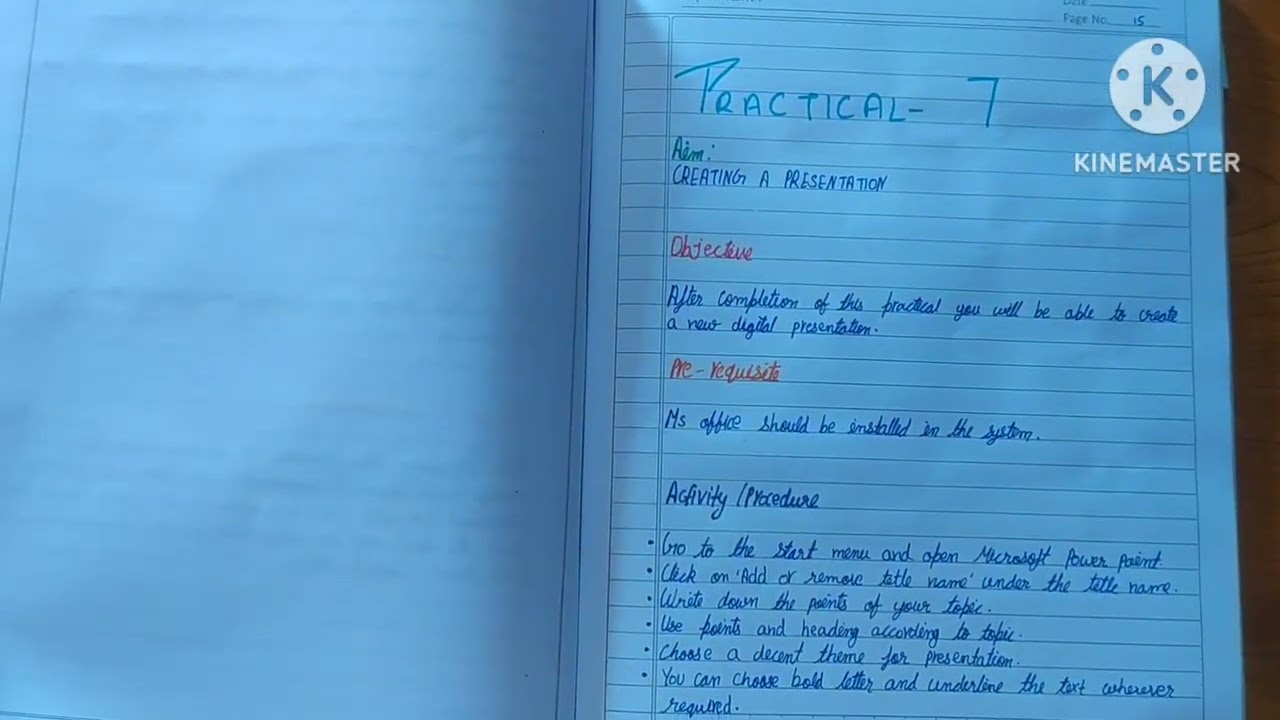 Page No. 15
PRACTICAL- 7
K
KINEMASTER
Aim:
CREATING A PRESENTATION
Objective
After completion of this practical you will be able to create
a new digital presentation.
Pre-requisite
Ms office should be installed in the system.
Activity/Procedure
• Go to the start menu and open Microsoft Power Point.
• Click on 'Add or remove title name' under the title name.
• Write down the points of your topic.
• Use points and heading according to topic.
• Choose a decent theme for presentation.
• You can choose bold letter and underline the text wherever
required.